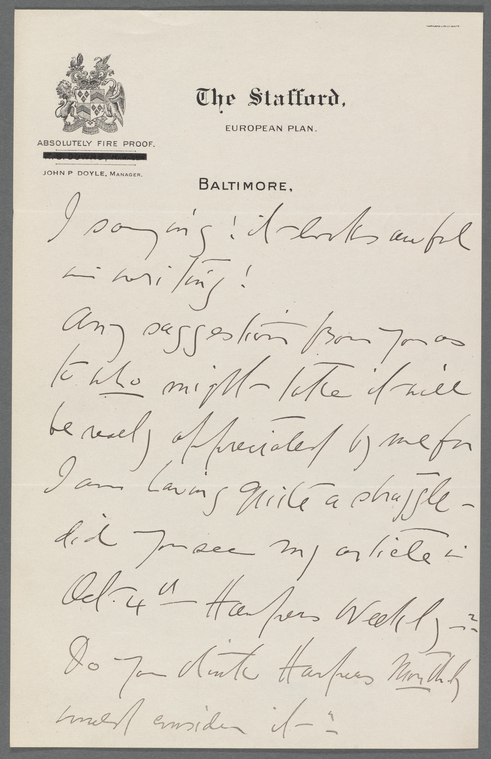 The Stafford.
EUROPEAN PLAN.
ABSOLUTELY FIRE PROOF.
JOHN P DOYLE, MANAGER.
BALTIMORE,
I saying! it looks awful
in writing!
Any suggestion from you as
to who might take it will
be really appreciated by me for
I am having quite a struggle –
did you see my article in
Oct. 4th – Harpers Weekly –?
Do you think Harpers Monthly
would consider it – ?